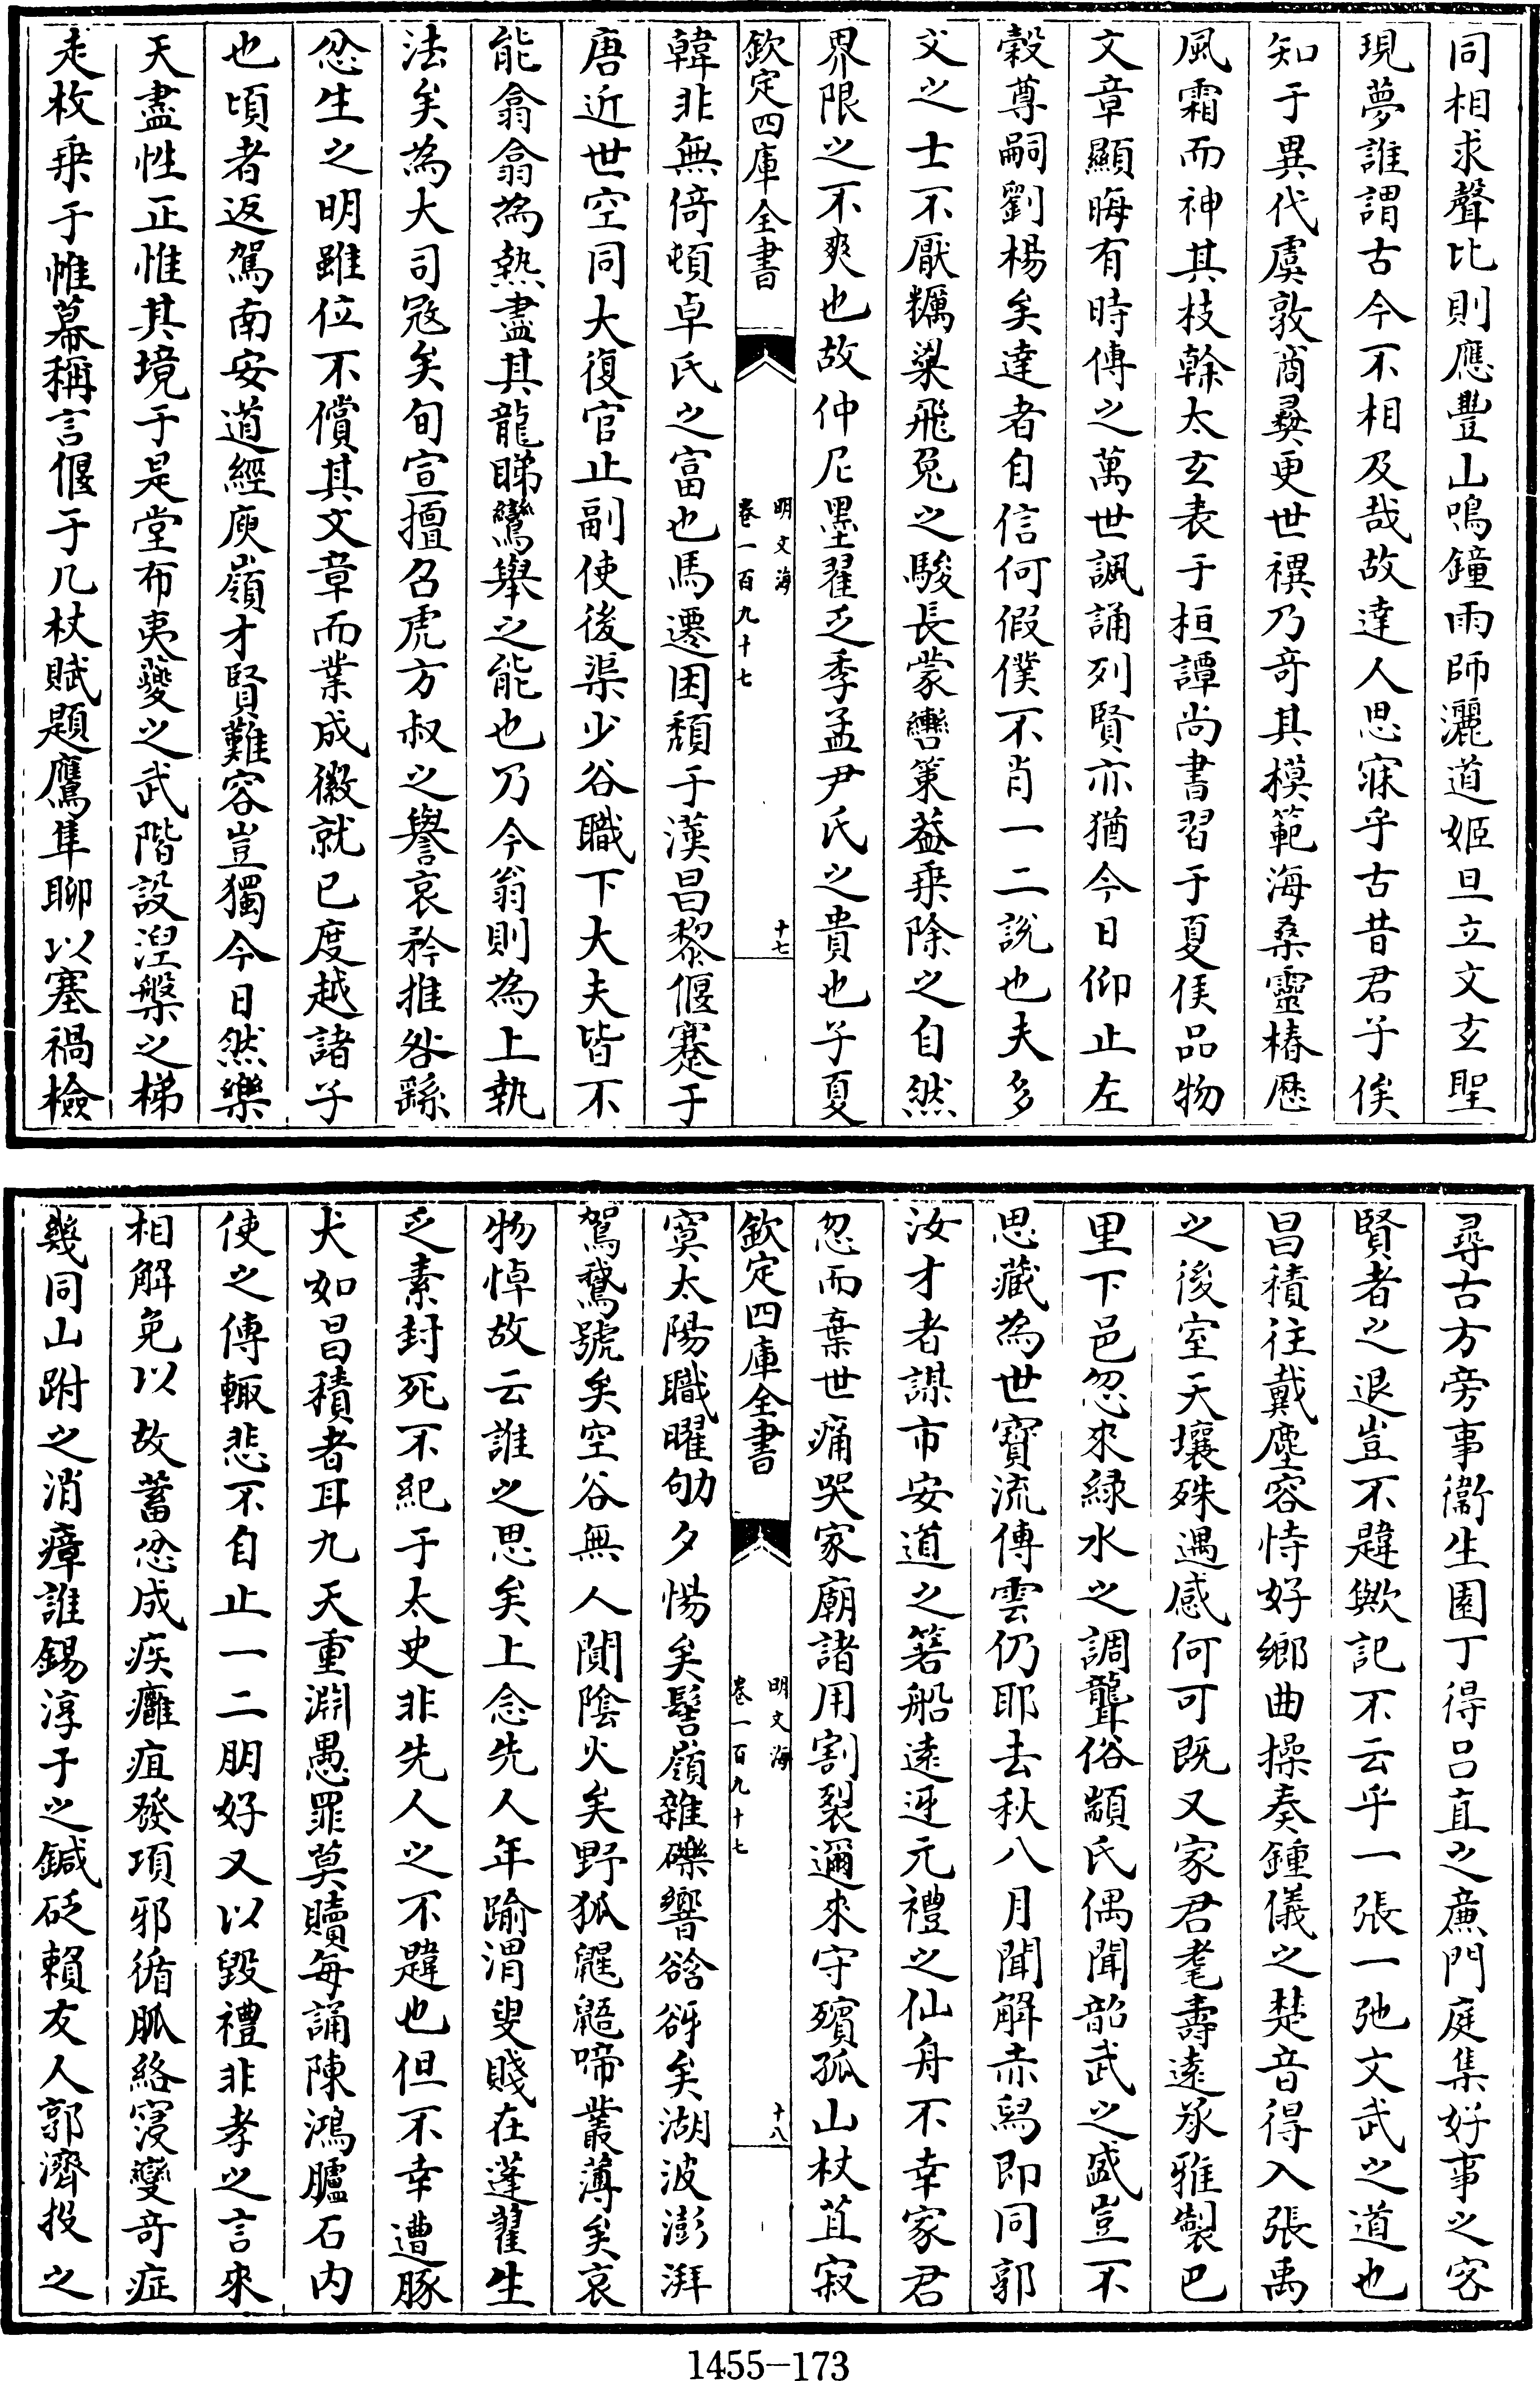 同相求聲比則應豐山鳴鐘雨師灑道姬旦立文玄聖
現夢誰謂古今不相及哉故達人思寐乎古昔君子俟
知于異代虞敦商彛更世禩乃奇其模範海桑靈椿歴
風霜而神其枝榦太玄表于桓譚尚書習于夏侯品物
文章顯晦有時傳之萬世諷誦列賢亦猶今日仰止左
穀尊嗣劉楊矣達者自信何假僕不肖一二説也夫多
文之士不厭糲粱飛兔之駿長蒙轡策益乗除之自然
界限之不爽也故仲尼墨翟乏季孟尹氏之貴也子夏
欽定四庫全書
明文海
卷一百九十七
十七
韓非無倚頓卓氏之富也馬遷困頽于漢昌黎偃蹇于
唐近世空同大復官止副使後渠少谷職下大夫皆不
能翕翕為熱盡其龍睇鸞舉之能也乃今翁則為上執
法矣為大司冦矣旬宣擅召虎方叔之譽哀矜推咎繇
忿生之明雖位不償其文章而業成徽就已度越諸子
也頃者返駕南安道經庾嶺才賢難容豈獨今日然樂
天盡性正惟其境于是堂布夷夔之武階設湼槃之梯
走枚乗于帷幕稱言偃于几杖賦題鷹隼聊以塞禍檢
尋古方旁事衞生園丁得呂直之亷門庭集好事之客
賢者之退豈不韙歟記不云乎一張一弛文武之道也
昌積往戴塵容恃好鄉曲操奏鍾儀之楚音得入張禹
之後室天壤殊遇感何可既又家君耄壽逺承雅製巴
里下邑忽來緑水之調聾俗顓氏偶聞韶武之盛豈不
思藏為世寳流傳雲仍耶去秋八月聞解赤舄即同郭
汝才者謀市安道之箬船逺迓元禮之仙舟不幸家君
忽而棄世痛哭家廟諸用割裂邇來守殯孤山杖苴寂
欽定四庫全書
明文海
卷一百九十七
十八
寞太陽職曜劬夕惕矣髻嶺雜礫響谽谺矣湖波澎湃
駕鵞號矣空谷無人閴陰火矣野狐鼪鼯啼叢薄矣哀
物悼故云誰之思矣上念先人年踰渭叟賤在蓬藋生
乏素封死不紀于太史非先人之不韙也但不幸遭豚
犬如昌積者耳九天重淵愚罪莫贖每誦陳鴻臚石内
使之傳輙悲不自止一二朋好又以毀禮非孝之言來
相解免以故蓄忿成疾癰疽發項邪循脈絡寖變奇症
幾同山跗之消瘴誰錫淳于之鍼砭賴友人郭濟投之
1455-173